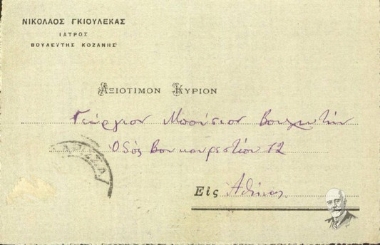 ΝΙΚΟΛΑΟΣ ΓΚΙΟΥΛΕΚΑΣ
ΙΑΤΡΟΣ
ΒΟΥΛΕΥΤΗΣ ΚΟΖΑΝΗΣ
ΑΞΙΟΤΙΜΟΝ ΚΥΡΙΟΝ
Γεώργιον Μπούσιον Βουλευτήν
Οδός Βουκουρεστίου 12
Εἰς Ἀθήνας